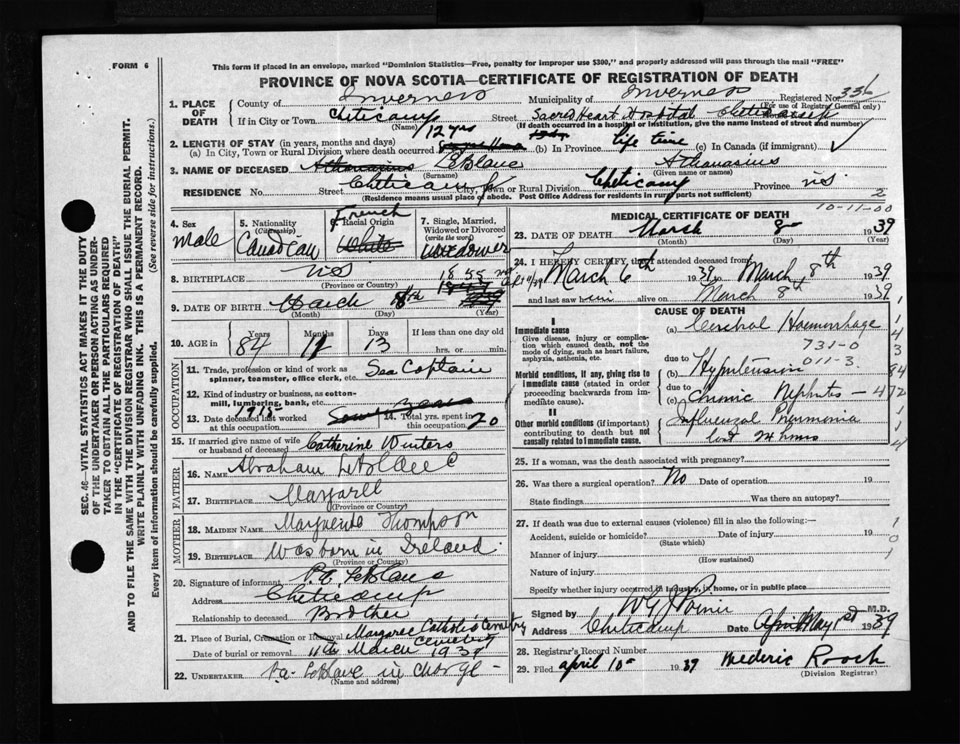 FORM 6
This form if placed in an envelope, marked "Dominion Statistics—Free, penalty for improper use $300," and properly addressed will pass through the mail "FREE"
PROVINCE OF NOVA SCOTIA—CERTIFICATE OF REGISTRATION OF DEATH
1. PLACE OF DEATH County of Inverness Municipality of Inverness Registered No. 336
(For use of Registrar General only)
If in City or Town Cheticamp (Name) Street Sacred Heart Hospital
(If death occurred in a hospital or institution, give the name instead of street and number)
2. LENGTH OF STAY (in years, months and days)
(a) In City, Town or Rural Division where death occurred 12 yrs (b) In Province life time (c) In Canada (if immigrant)
3. NAME OF DECEASED Athanasius LeBlanc (Surname) Athanasius (Given name or names)
RESIDENCE No. Street Cheticamp City, Town or Rural Division Cheticamp Province N.S.
(Residence means usual place of abode. Post Office Address for residents in rural parts not sufficient) 2
4. Sex Male
5. Nationality (Citizenship) Canadian
6. Racial Origin French White
7. Single, Married, Widowed or Divorced (write the word) Widower
8. BIRTHPLACE N.S. (Province or Country)
9. DATE OF BIRTH March (Month) (Day) 1855 (Year)
10. AGE in Years 84 Months 11 Days 13 If less than one day old hrs. or min.
OCCUPATION
11. Trade, profession or kind of work as spinner, teamster, office clerk, etc. Sea Captain
12. Kind of industry or business, as cotton-mill, lumbering, bank, etc.
13. Date deceased last worked at this occupation 1915
14. Total yrs. spent in this occupation 20
15. If married give name of wife or husband of deceased Catherine Winters
FATHER
16. NAME Abraham LeBlanc
17. BIRTHPLACE Margaree (Province or Country)
MOTHER
18. MAIDEN NAME Marguerite Thompson
19. BIRTHPLACE Was born in Ireland (Province or Country)
20. Signature of informant P.E. LeBlanc
Address Cheticamp
Relationship to deceased Brother
21. Place of Burial, Cremation or Removal Margaree Catholic Cemetery
Date of burial or removal 11th March 1939
22. UNDERTAKER LeBlanc in charge
(Name and address)
10-11-00
MEDICAL CERTIFICATE OF DEATH
23. DATE OF DEATH March (Month) 8 (Day) 1939 (Year)
24. I HEREBY CERTIFY, that I attended deceased from
March 6th 1939 to March 8th 1939
and last saw him alive on March 8th 1939
CAUSE OF DEATH
I
Immediate cause
Give disease, injury or complication which caused death, not the mode of dying, such as heart failure, asphyxia, asthenia, etc.
(a) Cerebral Haemorrhage
731-0
due to 011-3
Morbid conditions, if any, giving rise to immediate cause (stated in order proceeding backwards from immediate cause).
(b) Hypertension
due to
(c) Chronic Nephritis
II
Other morbid conditions (if important) contributing to death but not causally related to immediate cause.
Influenzal Pneumonia
25. If a woman, was the death associated with pregnancy?
26. Was there a surgical operation? No Date of operation 19
State findings Was there an autopsy?
27. If death was due to external causes (violence) fill in also the following:—
Accident, suicide or homicide? (State which) Date of injury 19
Manner of injury (How sustained)
Nature of injury
Specify whether injury occurred in industry, in home, or in public place
Signed by M.D.
Address Cheticamp Date April May 1st 1939
28. Registrar's Record Number
29. Filed April 10 1939 Frederic Roach
(Division Registrar)
SEC. 46—VITAL STATISTICS ACT MAKES IT THE DUTY OF THE UNDERTAKER OR PERSON ACTING AS UNDERTAKER TO OBTAIN ALL THE PARTICULARS REQUIRED IN THE "CERTIFICATE OF REGISTRATION OF DEATH" AND TO FILE THE SAME WITH THE DIVISION REGISTRAR WHO SHALL ISSUE THE BURIAL PERMIT.
WRITE PLAINLY WITH UNFADING INK. THIS IS A PERMANENT RECORD.
Every item of information should be carefully supplied. (See reverse side for instructions.)